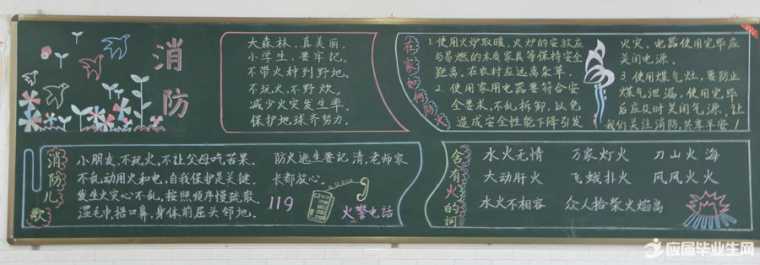 消防
大森林，真美丽。
小学生，要牢记。
不带火种到野地，
不玩火，不野炊，
减少火灾发生率，
保护地球齐努力。
在家如何防火
1.使用火炉取暖，火炉的安放应
与易燃的木质家具等保持安全
距离，在农村应远离柴草。
2.使用家用电器要符合安
全要求，不乱拆卸，以免
造成安全性能下降引发
火灾，电器使用完毕应
关闭电源。
3.使用煤气灶，要防止
煤气泄漏，使用完毕
后应及时关闭气源，让
我们关注消防，共享平安！
消防儿歌
小朋友，不玩火，不让父母吃苦果。
不乱动用火和电，自我保护是关键。
发生火灾心不乱，按照顺序慢疏散
湿毛巾捂口鼻，身体前屈头邻地。
防火逃生要记清，老师家
长都放心。
119
火警电话
含有火的词
水火无情 万家灯火 刀山火海
大动肝火 飞蛾扑火 风风火火
水火不相容 众人拾柴火焰高
应届毕业生网